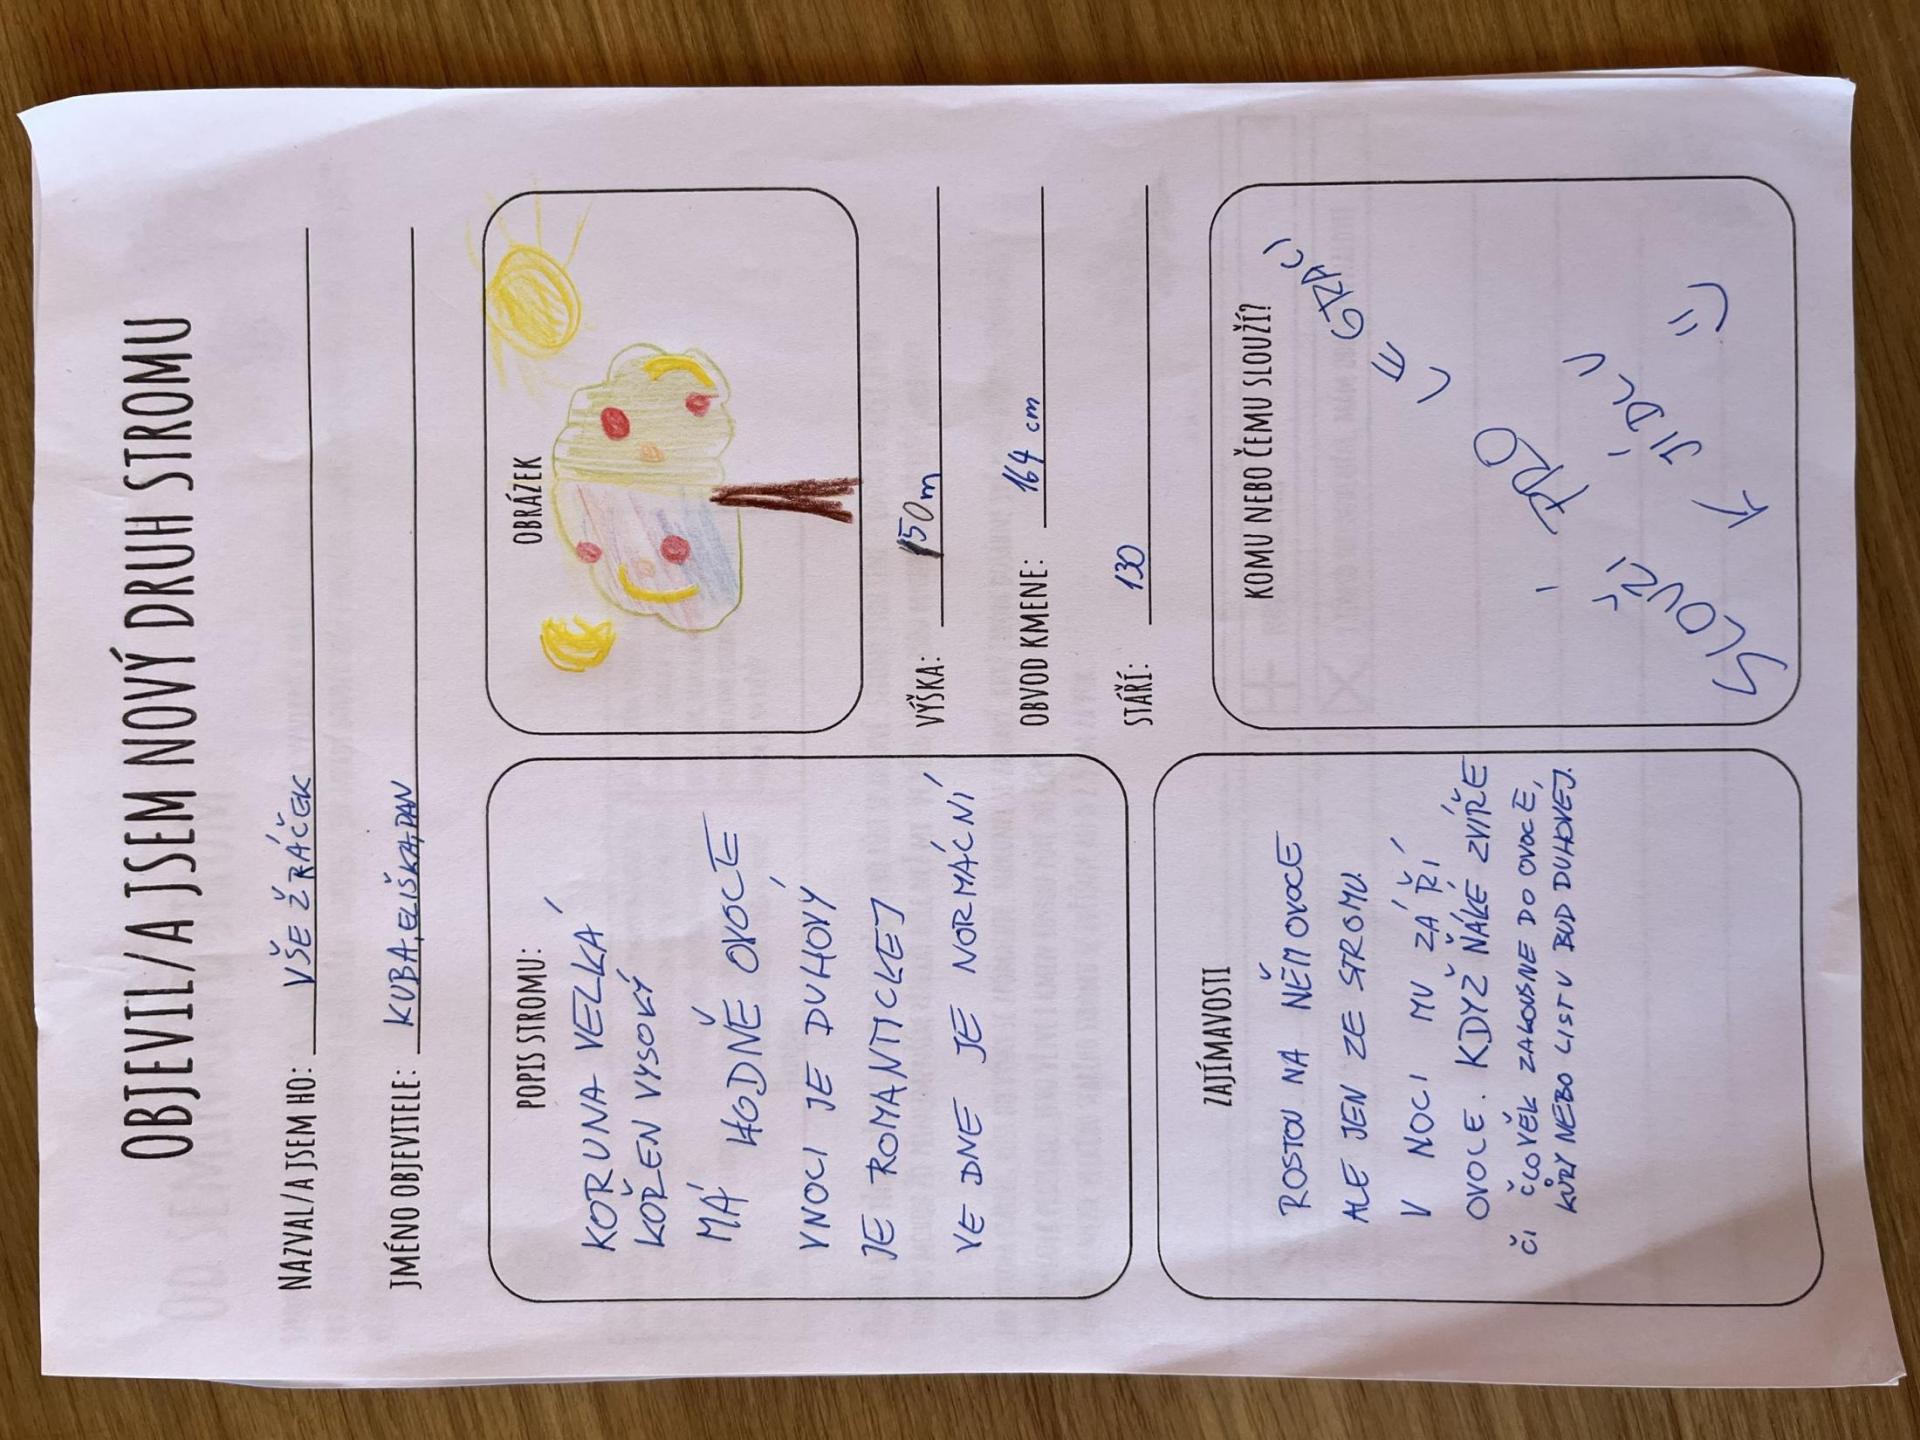 OBJEVIL/A JSEM NOVÝ DRUH STROMU
NAZVAL/A JSEM HO: VŠE ŽRÁČEK
JMÉNO OBJEVITELE: KUBA, ELIŠKA, DAN
POPIS STROMU:
KORUNA VELKÁ
KOŘEN VYSOKÝ
MÁ HODNĚ OVOCE
VNOCI JE DUHOVÝ
JE ROMANTICKEJ
VE DNE JE NORMÁLNÍ
OBRÁZEK
VÝŠKA: 150m
OBVOD KMENE: 164 cm
STÁŘÍ: 130
ZAJÍMAVOSTI
ROSTOU NA NĚM OVOCE
ALE JEN ZE STROMU.
V NOCI MU ZÁŘÍ
OVOCE. KDYŽ ŇÁKÉ ZVÍŘE
ČI ČLOVĚK ZAKOUSNE DO OVOCE,
KŮRY NEBO LISTU BUD DUHOVEJ.
KOMU NEBO ČEMU SLOUŽÍ?
SLOUŽÍ PRO LE GRACI
K JÍDLU =)